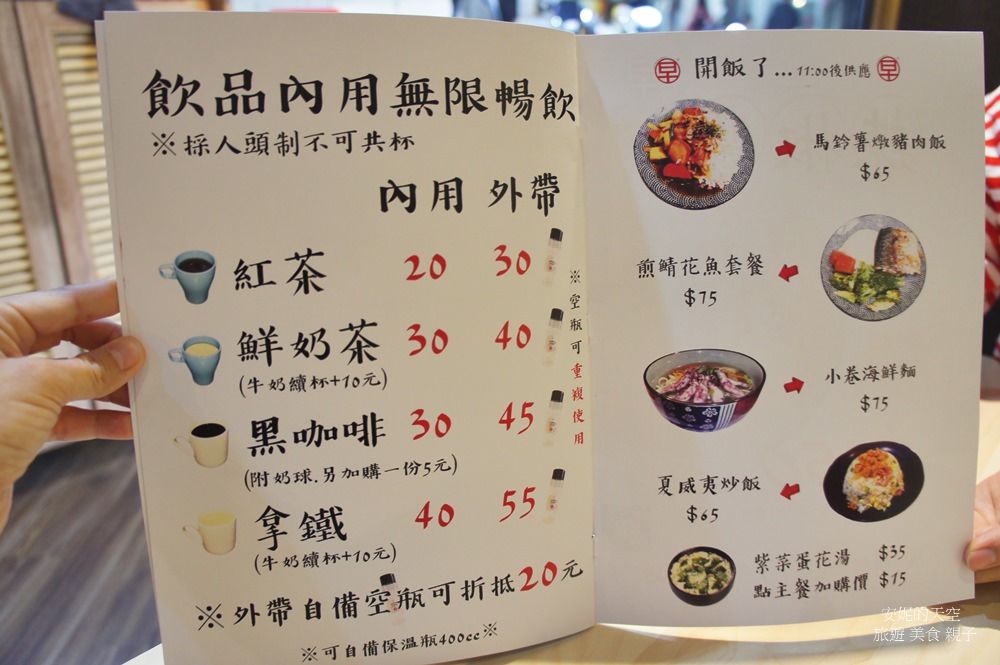 飲品內用無限暢飲
※採人頭制不可共杯
內用 外帶
紅茶 20 30
鮮奶茶 30 40
(牛奶續杯+10元)
黑咖啡 30 45
(附奶球.另加購一份5元)
拿鐵 40 55
(牛奶續杯+10元)
※空瓶可重複使用
※外帶自備空瓶可折抵20元
※可自備保溫瓶400cc※
早 開飯了...11:00後供應 早
馬鈴薯燉豬肉飯
$65
煎鯖花魚套餐
$75
小卷海鮮麵
$75
夏威夷炒飯
$65
紫菜蛋花湯 $35
點主餐加購價 $15
安妮的天空
旅遊 美食 親子